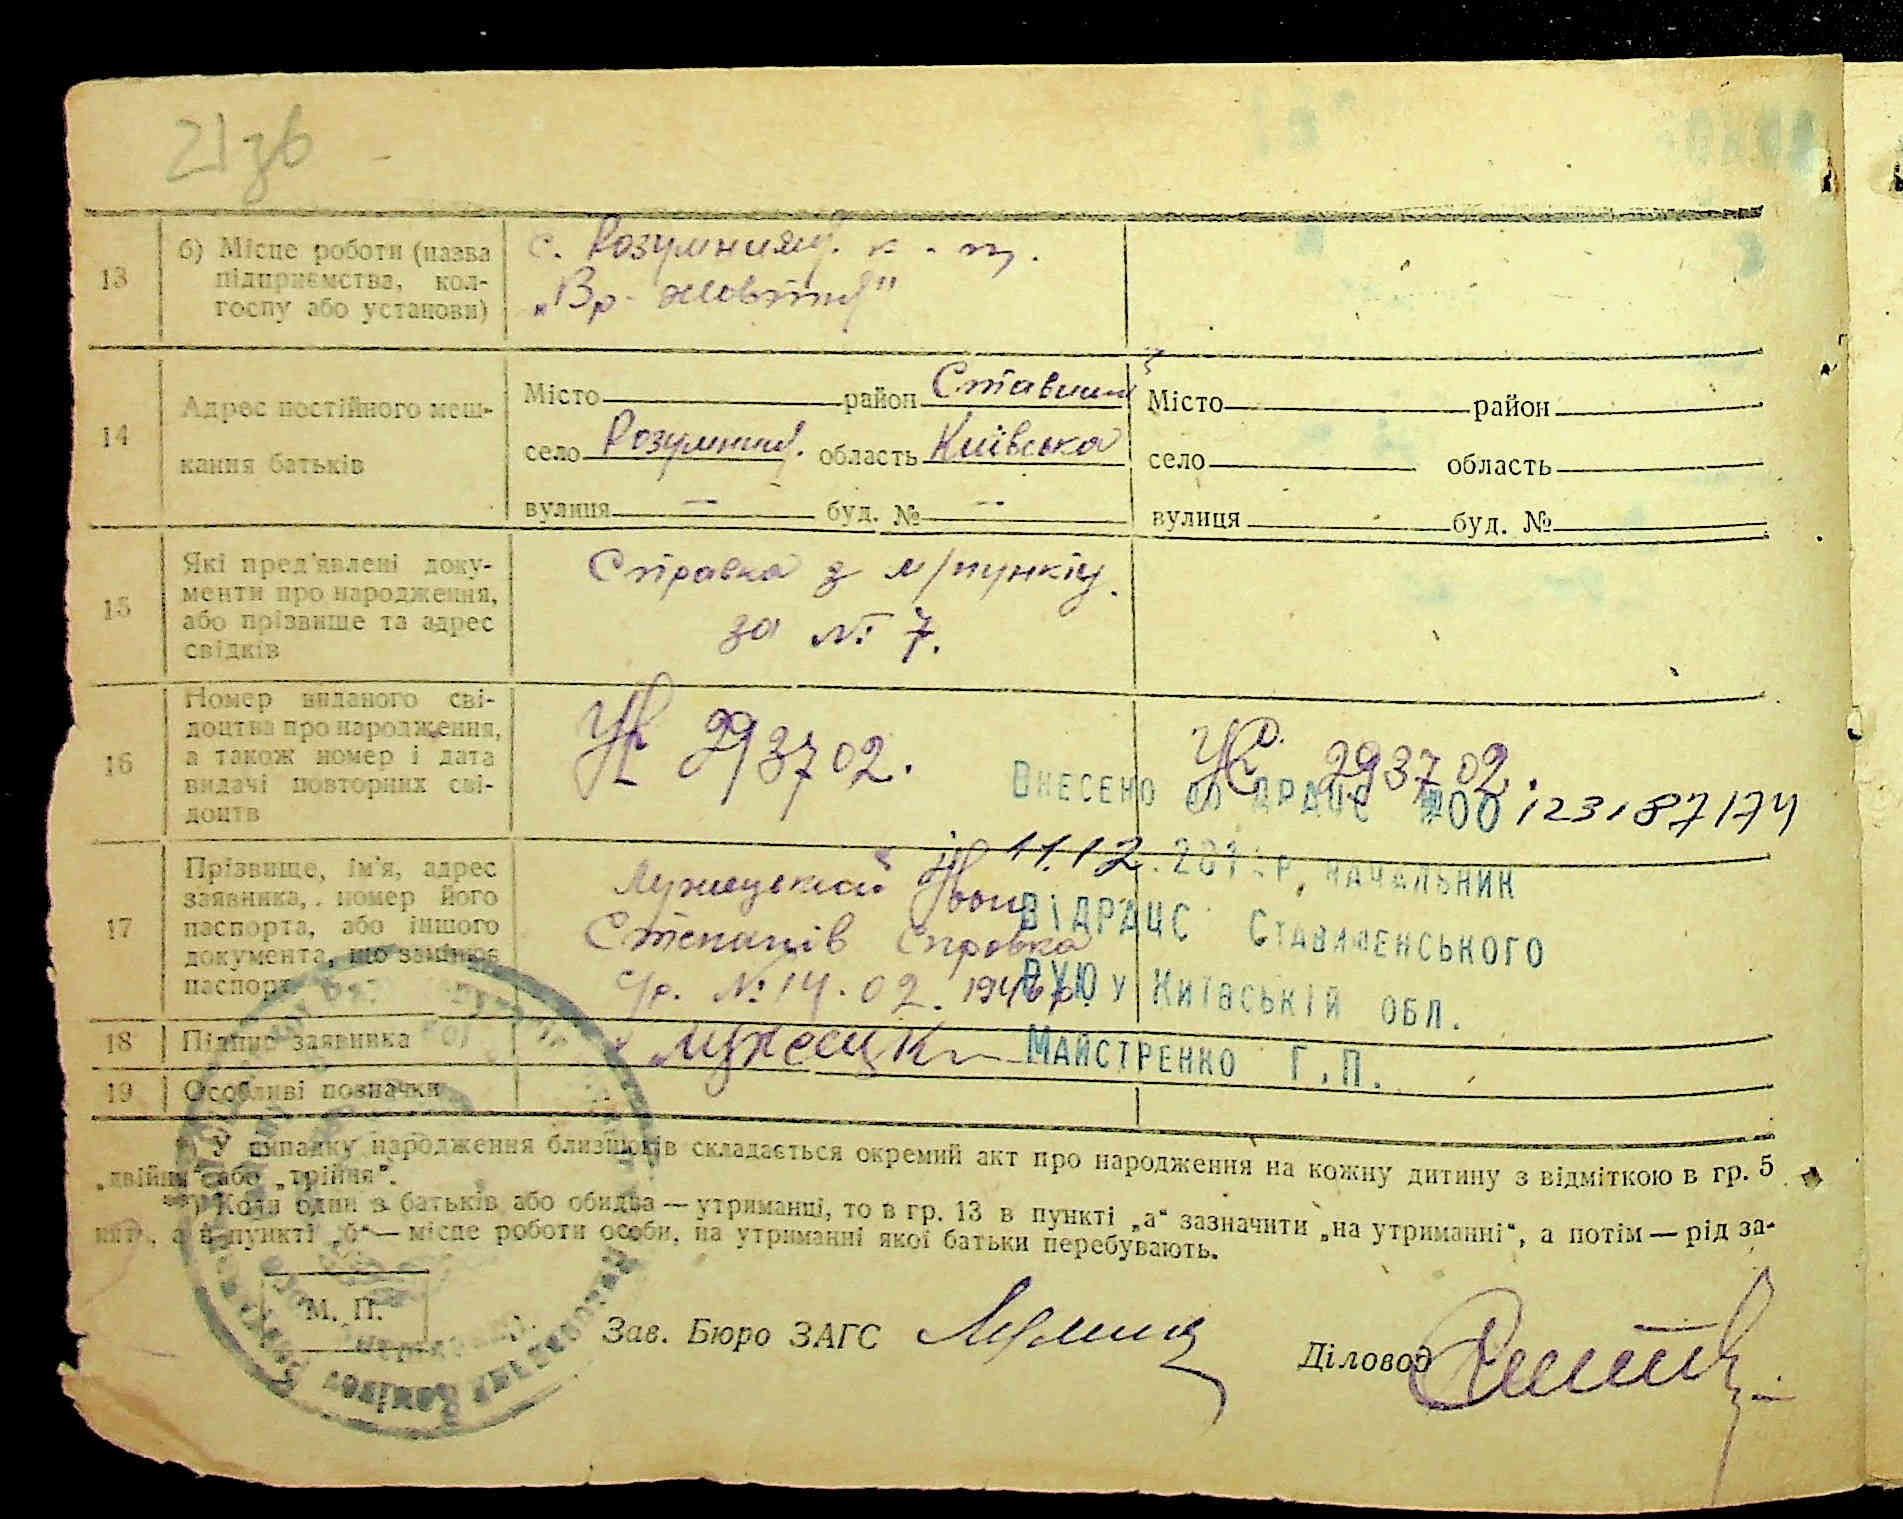 21зв
13
б) Місце роботи (назва
підприємства, кол-
госпу або установи)
с. Розумниця к-п.
14
Адрес постійного меш-
кання батьків
Місто район Ставищ
село область Київська
вулиця — буд. № —
Місто район
село область
вулиця буд. №
15
Які пред'явлені доку-
менти про народження,
або прізвище та адрес
свідків
Справка з м/пункту
за № 7.
16
Номер виданого сві-
доцтва про народження,
а також номер і дата
видачі повторних сві-
доцтв
293702.
293702.
Внесено до ДРАЦС 00123187174
11.12. р, начальник
ВіДРАЦС Ставищенського
РУЮ у Київській обл.
Майстренко Г.П.
17
Прізвище, ім'я, адрес
заявника, номер його
паспорта, або іншого
документа, що замінює
паспорт
Степанів Справка
№ 14. 02. 1946р.
18
Підпис заявника
19
Особливі позначки
У випадку народження близнюків складається окремий акт про народження на кожну дитину з відміткою в гр. 5
„двійня“ або „трійня“.
**) Коли один з батьків або обидва — утриманці, то в гр. 13 в пункті „а“ зазначити „на утриманні“, а потім — рід за-
нять, а в пункті „б“ — місце роботи особи, на утриманні якої батьки перебувають.
М. П.
Зав. Бюро ЗАГС
Діловод